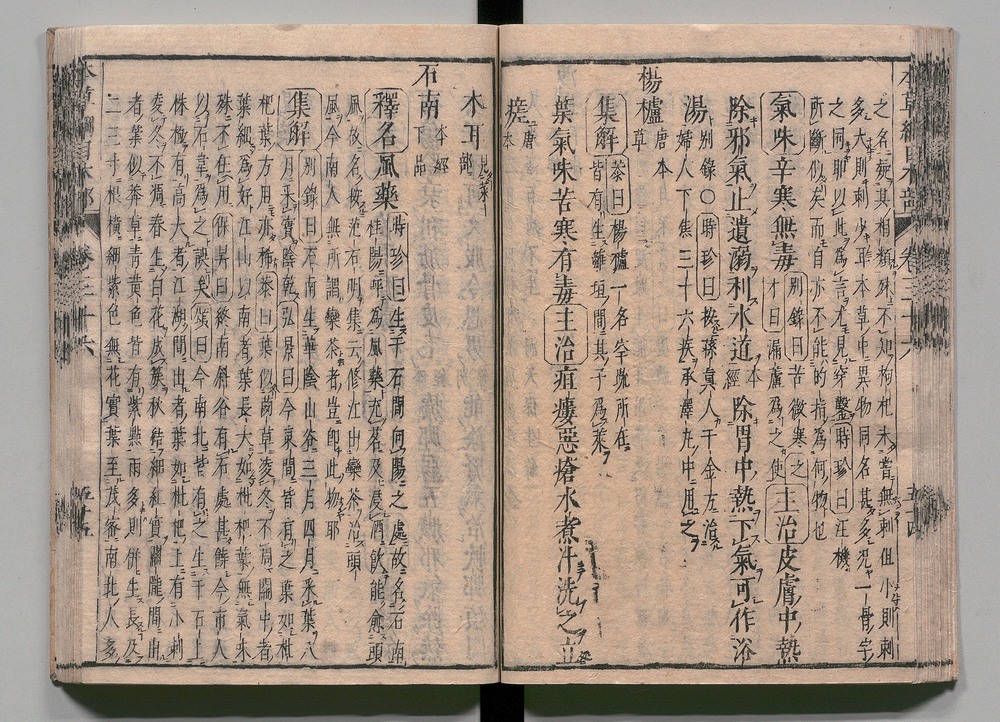 本草綱目木部 卷三十六 五十四
之名疑其相類殊不知枸杞未嘗無刺但小則刺
多大則刺少耳本草中異物同名甚多況一骨字
之同耶以此為言尤見穿鑿時珍曰汪機
所斷似矣而自亦不能的指為何物也
氣味辛寒無毒別錄曰苦微寒之才曰漏蘆為之使主治皮膚中熱
除邪氣止遺溺利水道本經除胃中熱下氣可作浴
湯別錄○時珍曰按孫真人千金方治婦人下焦三十六疾承澤丸中用之
楊櫨唐本草
集解恭曰楊櫨一名空疏所在皆有生籬垣間其子為莢
葉氣味苦寒有毒主治疽瘻惡瘡水煮汁洗之立
瘥唐本
木耳見菜部
石南本經下品
釋名風藥時珍曰生于石間向陽之處故名石南
桂陽呼為風藥充茗及浸酒飲能愈頭
風故名按范石湖集云修江出欒茶治頭
風今南人無所謂欒茶者豈即此物耶
集解別錄曰石南生華陰山谷三月四月采葉八
月采實陰乾弘景曰今東間皆有之葉如枇
杷葉方用亦稀恭曰葉似䒽草凌冬不凋關中者
葉細為好江山以南者葉長大如枇杷葉無氣味
殊不任用保昇曰終南斜谷有石處甚饒今市人
以石韋為之誤矣頌曰今南北皆有之生于石上
株極有高大者江湖間出者葉如枇杷上有小刺
凌冬不凋春生白花成簇秋結細紅實關隴間出
者葉似莽草青黃色背有紫點雨多則併生長及
二三寸根橫細紫色無花實葉至茂密南北人多
本草綱目木部 卷三十六 五十五